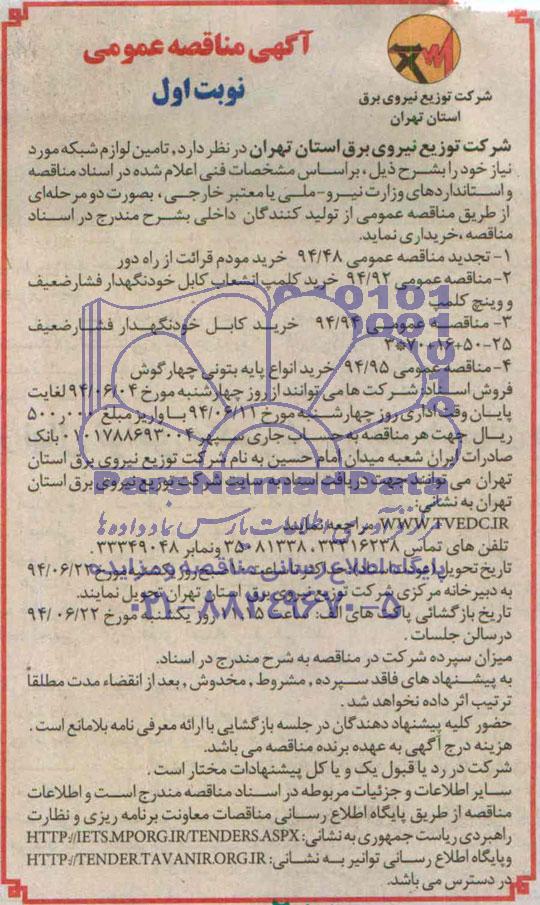 آگهی مناقصه عمومی
نوبت اول
شرکت توزیع نیروی برق
استان تهران
شرکت توزیع نیروی برق استان تهران در نظر دارد، تامین لوازم شبکه مورد
نیاز خود را بشرح ذیل، براساس مشخصات فنی اعلام شده در اسناد مناقصه
و استانداردهای وزارت نیرو-ملی یا معتبر خارجی، بصورت دو مرحله‌ای
از طریق مناقصه عمومی از تولید کنندگان داخلی بشرح مندرج در اسناد
مناقصه، خریداری نماید.
۱- تجدید مناقصه عمومی ۹۴/۴۸ خرید مودم قرائت از راه دور
۲-مناقصه عمومی ۹۴/۹۲ خرید کلمپ انشعاب کابل خودنگهدار فشارضعیف
و وینچ کلمپ
۳- مناقصه عمومی ۹۴/۹۴ خرید کابل خودنگهدار فشارضعیف
۲۵-۵۰+۱۶+۷۰*۳
۴-مناقصه عمومی ۹۴/۹۵ خرید انواع پایه بتونی چهارگوش
فروش اسناد: شرکت ها می توانند از روز چهارشنبه مورخ ۹۴/۰۶/۰۴ لغایت
پایان وقت اداری روز چهارشنبه مورخ ۹۴/۰۶/۱۱ با واریز مبلغ ۵۰۰٫۰۰۰
ریال جهت هر مناقصه به حساب جاری سپهر ۰۱۰۱۷۸۸۶۹۳۰۰۴ بانک
صادرات ایران شعبه میدان امام حسین به نام شرکت توزیع نیروی برق استان
تهران می توانند جهت دریافت اسناد به سایت شرکت توزیع نیروی برق استان
تهران به نشانی:
WWW.TVEDC.IR مراجعه نمایند
تلفن های تماس ۳۳۲۱۶۲۳۸، ۳۵۰۸۱۳۳۸ و نمابر ۳۳۳۴۹۰۴۸ .
تاریخ تحویل اسناد: حداکثر تا ساعت صبح روز یکشنبه مورخ ۹۴/۰۶/۲۲
به دبیرخانه مرکزی شرکت توزیع نیروی برق استان تهران تحویل نمایند.
تاریخ بازگشائی پاکت های الف: ساعت روز یکشنبه مورخ ۹۴/۰۶/۲۲
درسالن جلسات .
میزان سپرده شرکت در مناقصه به شرح مندرج در اسناد.
به پیشنهاد های فاقد سپرده، مشروط، مخدوش، بعد از انقضاء مدت مطلقاً
ترتیب اثر داده نخواهد شد .
حضور کلیه پیشنهاد دهندگان در جلسه بازگشایی با ارائه معرفی نامه بلامانع است .
هزینه درج آگهی به عهده برنده مناقصه می باشد.
شرکت در رد یا قبول یک و یا کل پیشنهادات مختار است .
سایر اطلاعات و جزئیات مربوطه در اسناد مناقصه مندرج است و اطلاعات
مناقصه از طریق پایگاه اطلاع رسانی مناقصات معاونت برنامه ریزی و نظارت
راهبردی ریاست جمهوری به نشانی: HTTP://IETS.MPORG.IR/TENDERS.ASPX
و پایگاه اطلاع رسانی توانیر به نشانی: HTTP://TENDER.TAVANIR.ORG.IR
در دسترس می باشد.
ParsNamadData
مرکز فرآوری اطلاعات پارس نماد داده ها
پایگاه اطلاع رسانی مناقصه و مزایده
۰۲۱-۸۸۳۴۹۶۷۰-۵